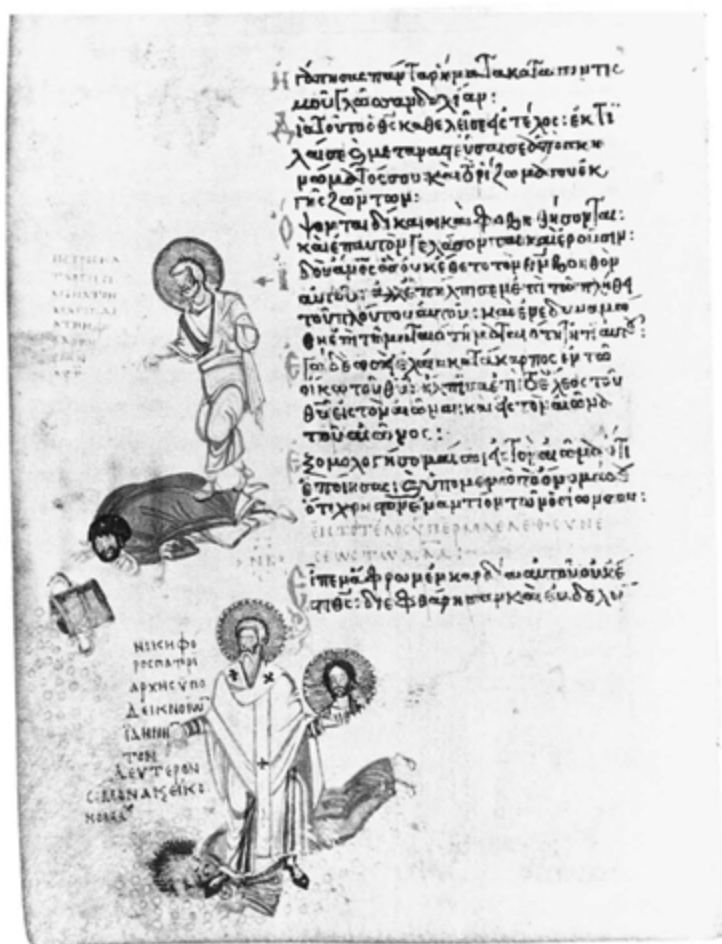 Ἠγάπησας πάντα ῥήματα καταποντισ
μοῦ γλῶσσαν δολίαν:
Διὰ τοῦτο ὁ θς καθελεῖ σε εἰς τέλος: ἐκτί
λαι σε καὶ μεταναστεύσαι σε ἀπὸ σκη
νώματός σου: καὶ τὸ ῥίζωμά σου ἐκ
γῆς ζώντων:
Ὄψονται δίκαιοι καὶ φοβηθήσονται:
καὶ ἐπ αὐτὸν γελάσονται καὶ ἐροῦσιν:
Ἰδοὺ ἄνος ὃς οὐκ ἔθετο τὸν θν βοηθὸν
αὐτοῦ: ἀλλ ἐπήλπισεν ἐπὶ τῶ πλήθει
τοῦ πλούτου αὐτοῦ: καὶ ἐνεδυναμώ
θη ἐπὶ τῆ ματαιότητι αὐτοῦ:
Ἐγὼ δὲ ὡσεὶ ἐλαία κατάκαρπος ἐν τῶ
οἴκω τοῦ θυ: ἤλπισα ἐπὶ τὸ ἔλεος τοῦ
θυ εἰς τὸν αἰῶνα: καὶ εἰς τὸν αἰῶνα
τοῦ αἰῶνος:
Ἐξομολογήσομαί σοι εἰς τὸν αἰῶνα ὅτι
ἐποίησας: καὶ ὑπομενῶ τὸ ὄνομά σου
ὅτι χρηστὸν ἐναντίον τῶν ὁσίων σου:
ΕΙΣ ΤΟ ΤΕΛΟΣ ΥΠΕΡ ΜΑΕΛΕΘ ΣΥΝΕ
ΣΕΩΣ ΤΩ ΔΑΔ:
Εἶπεν ἄφρων ἐν καρδία αὐτοῦ οὐκ ἔ
στι θς: διεφθάρησαν καὶ ἐβδελύ
ΝΙΚΗΦΟ
ΡΟΣ ΠΑΤΡΙ
ΑΡΧΗΣ ΥΠΟ
ΔΕΙΚΝΟΙΩ
ΙΔΗΝΗ
ΤΟΝ
ΔΕΥΤΕΡΟΝ
ΣΙΜΟΝΑ Κ ΕΙΚΟ
ΝΟΜΑΧ